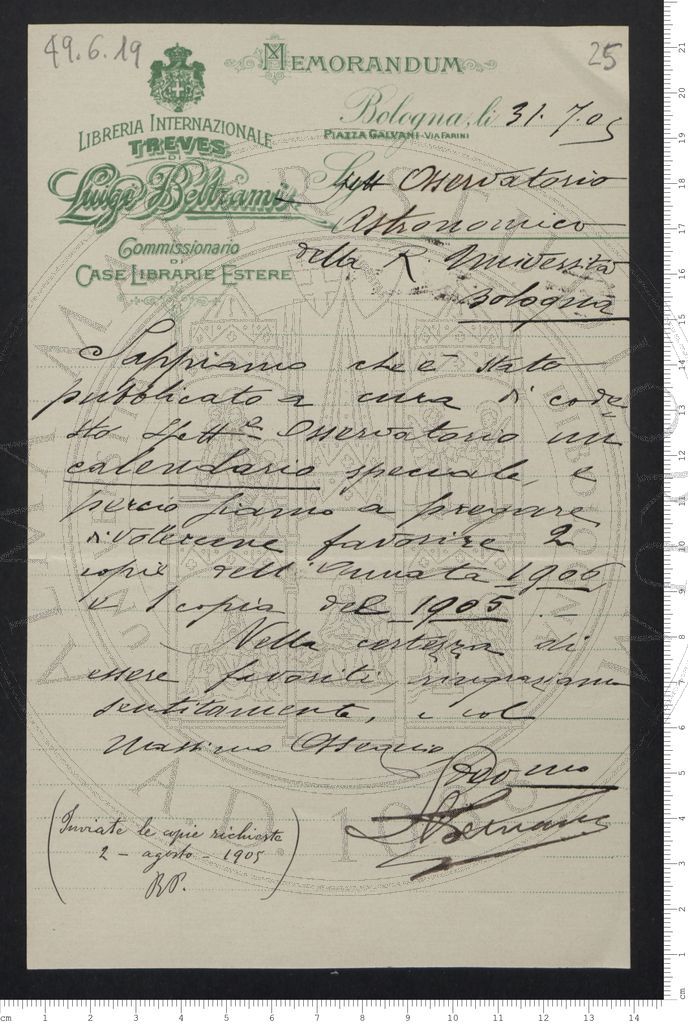 49.6.19
25
MEMORANDUM
LIBRERIA INTERNAZIONALE
TREVES
DI
Luigi Beltrami
Commissionario
DI
CASE LIBRARIE ESTERE
Bologna, li 31.7.05
PIAZZA GALVANI - VIA FARINI
Osservatorio
Astronomico
della R. Università
Bologna
Sappiamo che è stato
pubblicato a cura di code-
sto Spett.e Osservatorio un
calendario speciale, e
perciò siamo a pregare
di volercene favorire 2
copie dell'annata 1906
e 1 copia del 1905.-
Nella certezza di
essere favoriti, ringraziamo
sentitamente, e col
Massimo Ossequio
(Inviate le copie richieste
2 - agosto - 1905